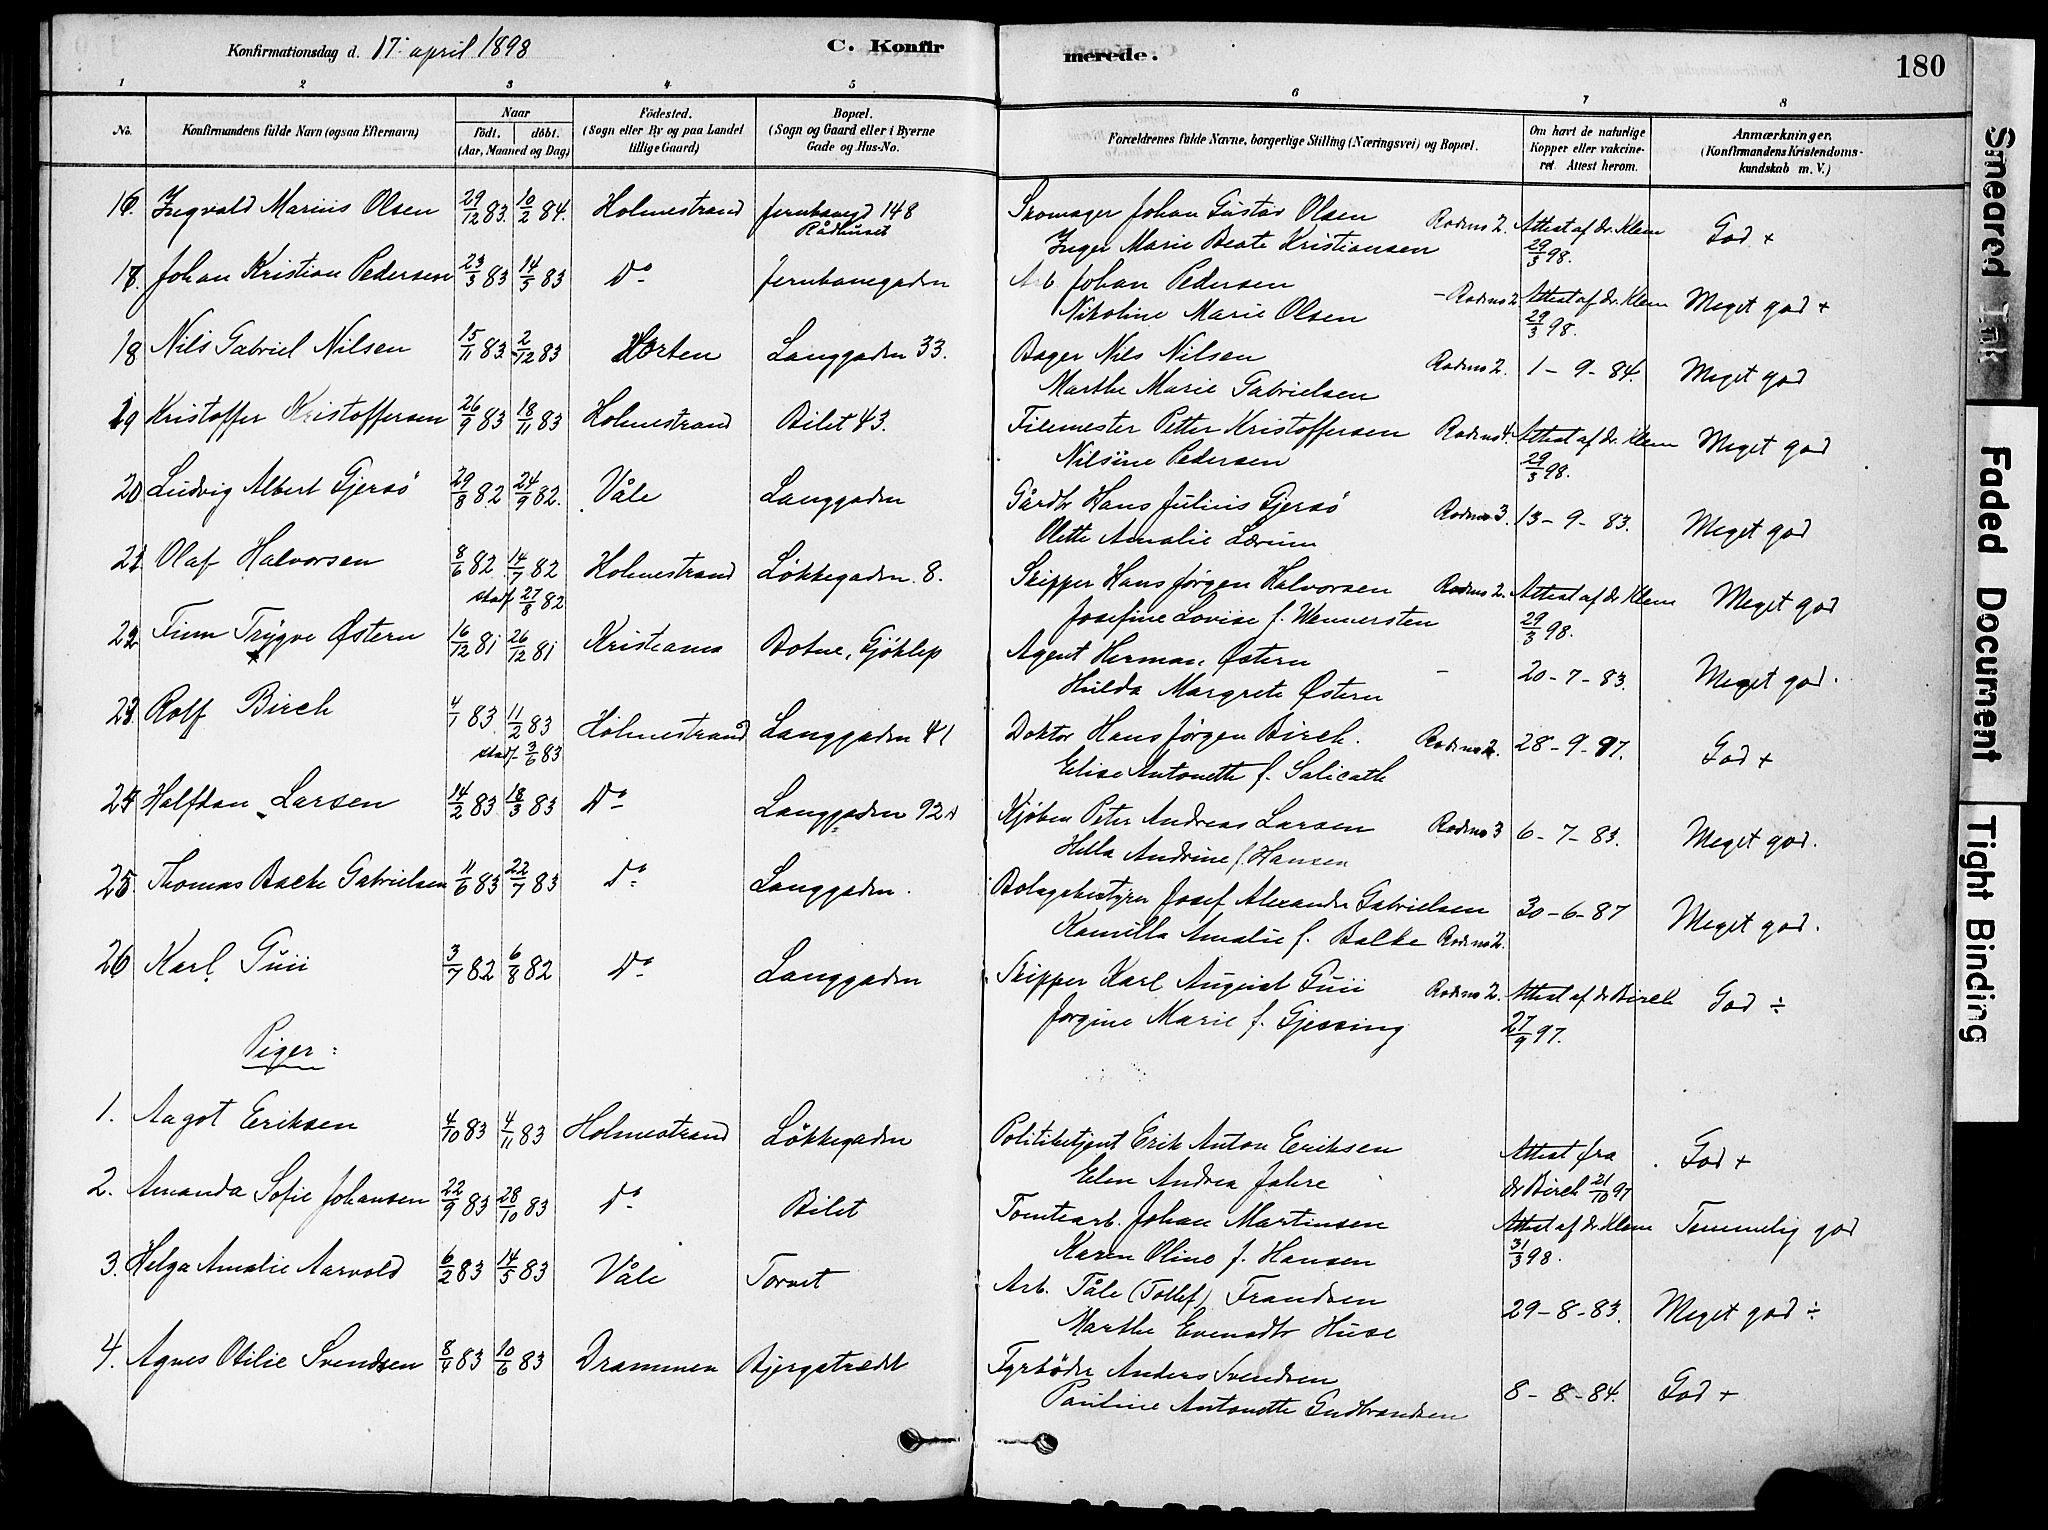 Konfirmationsdag d. 17. april 1898
C. Konfirmerede.
180
1 2 3 4 5 6 7 8
No.
Konfirmandens fulde Navn (ogsaa Efternavn)
Naar
födt. döbt.
(Aar, Maaned og Dag)
Födested.
(Sogn eller By og paa Landet
tillige Gaard)
Bopæl.
(Sogn og Gaard eller i Byerne
Gade og Hus-No.
Forældrenes fulde Navne, borgerlige Stilling (Næringsvei) og Bopæl.
Om havt de naturlige
Kopper eller vakcine-
ret. Attest herom.
Anmærkninger.
(Konfirmandens Kristendoms-
kundskab m. V.)
16. Ingvald Marius Olsen 29/12 83. 10/2 84. Holmestrand Jernbanegd 148 Skomager Johan Gustav Olsen Rodens 2. Attest af dr. Klem God +
Rådhuset Inger Marie Beate Kristiansen 29/3 98.
Johan Kristian Pedersen 23/3 83 14/5 83 Do Jernbanegaden Arb. Johan Pedersen - Rodens 2 Attest af dr. Klem Meget god +
Nikoline Marie Olsen 29/3 98.
18 Nils Gabriel Nilsen 15/11 83. 2/12 83 Horten Langgaden 33. Bager Nils Nilsen Rodens 2. 1-9-84. Meget god
Marthe Marie Gabrielsen
19 Kristoffer Kristoffersen 26/9 83 18/11 83 Holmestrand Bilet 43. Filemester Petter Kristoffersen Rodens 4. Attest af dr. Klem Meget god
Nilsine Pedersen 29/3 98.
20 Ludvig Albert Gjersö 29/8 82 24/9 82. Våle Langgaden Gårdbr Hans Julius Gjersö Rodens 3. 13-9-83. Meget god
Olette Amalie Lærum
21 Olaf Halvorsen 8/6 82 14/7 82 Holmestrand Løkkegaden 8. Skipper Hans Jørgen Halvorsen Rodens 2. Attest af dr Klem Meget god
stadf. 27/8 82 Josefine Lovise f. Wennersten 29/3 98.
22 Finn Trygve Østern 16/12 81 26/12 81 Kristiania Botne, Gjöklep Agent Herman Østern - 20-7-83. Meget god.
Hulda Margrete Østern
23 Rolf Birch 4/1 83. 11/2 83 Holmestrand Langgaden 41 Doktor Hans Jørgen Birch. Rodens 2. 28-9-97. God +
stadf. 3/6 83 Elise Antonette f. Salicath
24 Halfdan Larsen 14/2 83 18/3 83 Do Langgaden 92 Kjøbm Peter Andreas Larsen Rodens 3 6-7-83. Meget god.
Hella Andrine f. Hansen
25 Thomas Bache Gabrielsen 11/6 83 22/7 83 Do Langgaden. Bolagsbestyrer Josef Alexander Gabrielsen 30-6-87 Meget god.
Kamilla Amalie f. Balke Rodens 2.
26 Karl Guii 3/7 82 6/8 82 Do Langgaden Skipper Karl August Guii Rodens 2. Attest af dr Birch God ÷
Jorgine Marie f. Gjessing 27/9 97.
Piger:
1. Aagot Eriksen 4/10 83 4/11 83 Holmestrand Løkkegaden Politibetjent Erik Anton Eriksen Attest fra God +
Elen Andrea Jahre dr Birch 21/10 97
2. Amanda Sofie Johansen 22/9 83 28/10 83 Do Bilet Tomtearb. Johan Martinsen Attest af dr. Klem Temmelig god
Karen Oline f. Hansen 31/3 98.
3. Helga Amalie Aarvold 6/2 83 14/5 83 Våle Torvet Arb. Tåle (Tollef) Frandsen 29-8-83. Meget god ÷
Marthe Evensdtr Huse
4. Agnes Otilie Svendsen 8/4 83 10/6 83 Drammen Bjergstrædet Fyrbøder Anders Svendsen 8-8-84. God +
Pauline Antonette Gudbrandsen
Smeared Ink
Faded Document
Tight Binding